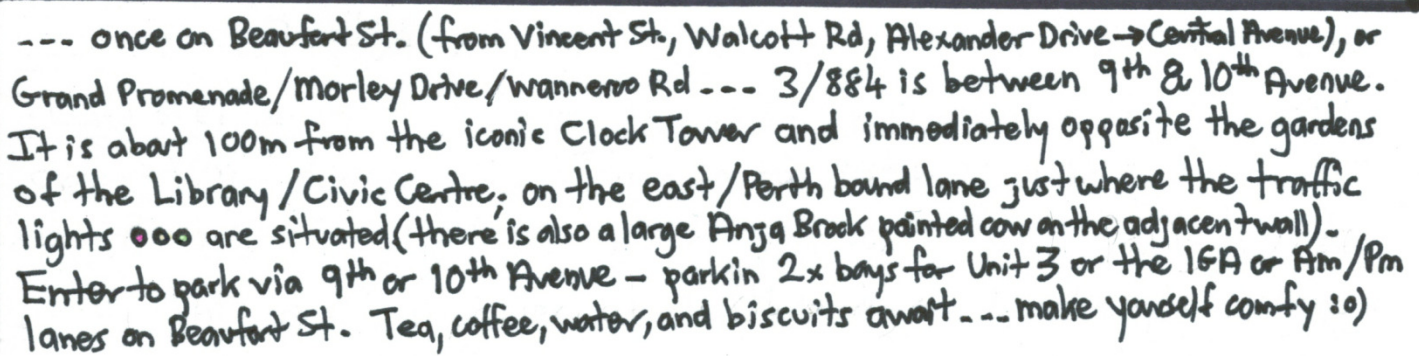 --- once on Beaufort St. (from Vincent St., Walcott Rd, Alexander Drive→Central Avenue), or
Grand Promenade/Morley Drive/Wanneroo Rd --- 3/884 is between 9th & 10th Avenue.
It is about 100m from the iconic Clock Tower and immediately opposite the gardens
of the Library/Civic Centre; on the east/Perth bound lane just where the traffic
lights ooo are situated (there is also a large Anya Brock painted cow on the adjacent wall).
Enter to park via 9th or 10th Avenue – park in 2x bays for Unit 3 or the IGA or Am/Pm
lanes on Beaufort St. Tea, coffee, water, and biscuits await ... make yourself comfy :o)